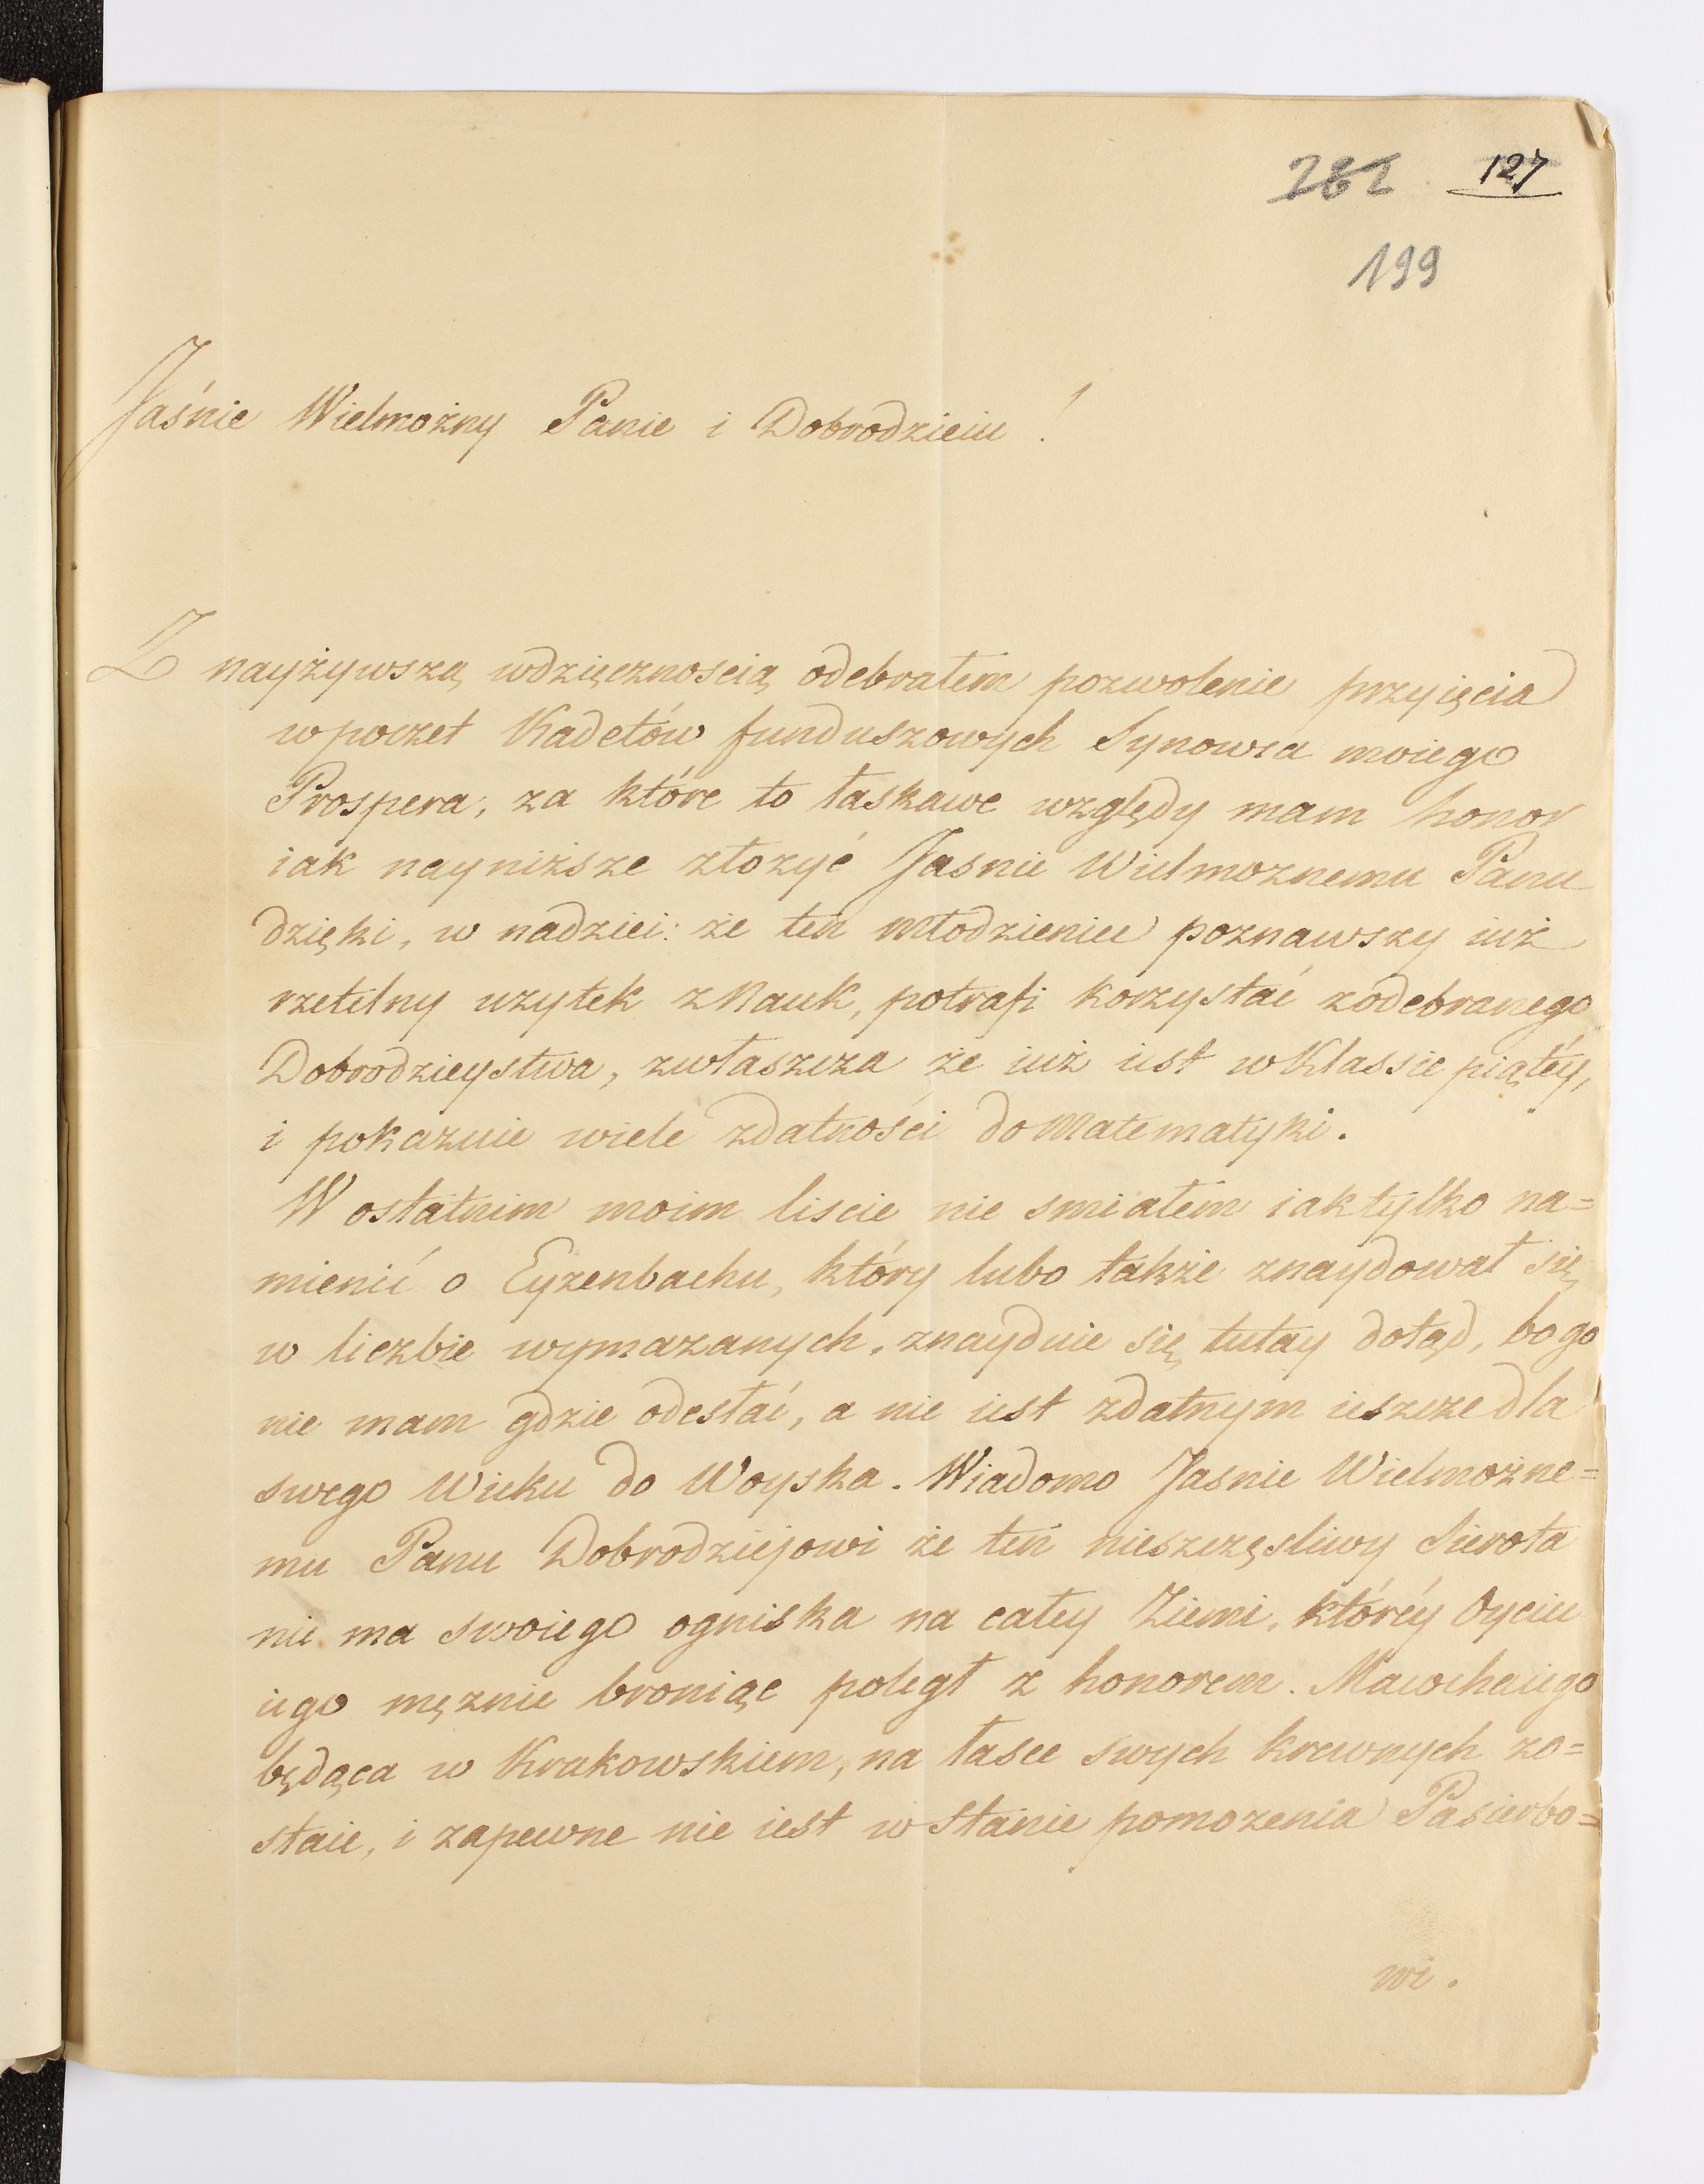 282 127
199
Jaśnie Wielmożny Panie i Dobrodzieiu!
Z nayżywszą wdzięcznoscią odebrałem pozwolenie przyięcia
w poczet Kadetów funduszowych Synowca moiego
Prospera, za które to łaskawe względy mam honor
iak nayniższe złozyć Jasnie Wielmoznemu Panu
dzięki, w nadziei: że ten Młodzieniec poznawszy iuż
rzetelny uzytek z Nauk, potrafi korzystać z odebranego
Dobrodzieystwa, zwłaszcza że iuż iest w Klassie piątéy,
i pokazuie wiele zdatności do Matematyki.
W ostatnim moim liscie nie smiałem iak tylko na=
mienić o Eyzenbachu, który lubo także znaydował się
w liczbie wymazanych, znayduie się tutay dotąd, bo go
nie mam gdzie odesłać, a nie iest zdatnym ieszcze dla
swego Wieku do Woyska. Wiadomo Jasnie Wielmożne=
mu Panu Dobrodziejowi że ten nieszczęsliwy Sierota
nie ma swoiego ogniska na całey Ziemi, któréy Oyciec
iego mężnie broniąc poległ z honorem. Macocha iego
będąca w Krakowskiem, na łasce swych krewnych zo=
staie, i zapewne nie iest w Stanie pomozenia Pasierbo=
wi.